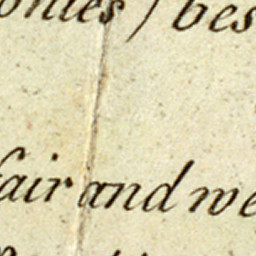 onies) bes
fair and we